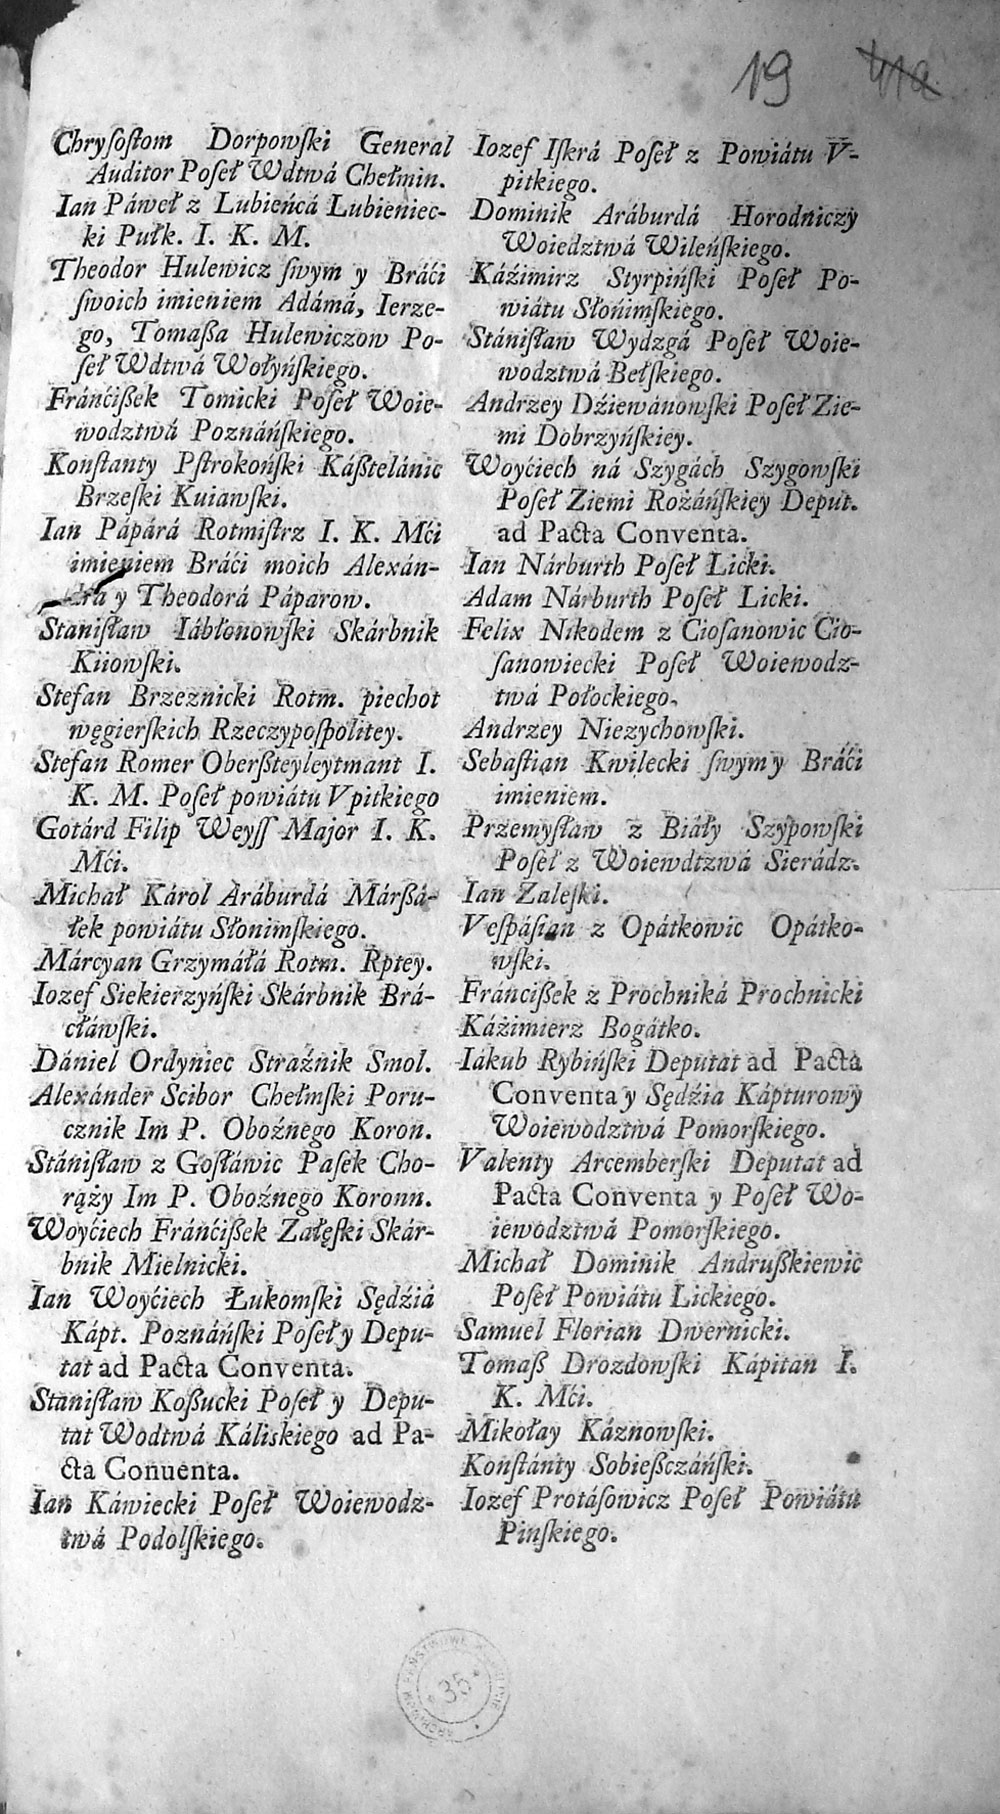 19
Chryſoſtom Dorpowſki General
Auditor Poſeł Wdtwá Chełmin.
Ian Páweł z Lubieńcá Lubieniec-
ki Pułk. I. K. M.
Theodor Hulewicz ſwym y Bráći
ſwoich imieniem Adámá, Ierze-
go, Tomaßa Hulewiczow Po-
ſeł Wdtwá Wołyńſkiego.
Fránćißek Tomicki Poſeł Woie-
wodztwá Poznáńſkiego.
Konſtanty Pſtrokońſki Káßtelánic
Brzeſki Kuiawſki.
Ian Pápárá Rotmiſtrz I. K. Mći
imieniem Bráći moich Alexán-
dra y Theodorá Páparow.
Staniſław Iábłonowſki Skárbnik
Kiiowſki.
Stefan Brzeznicki Rotm. piechot
węgierſkich Rzeczypoſpolitey.
Stefan Romer Oberßteyleytmant I.
K. M. Poſeł powiátu Vpitkiego
Gotárd Filip Weyſſ Major I. K.
Mći.
Michał Károl Aráburdá Márßá-
łek powiátu Słonimſkiego.
Márcyan Grzymáłá Rotm. Rptey.
Iozef Siekierzyńſki Skárbnik Brá-
cłáwſki.
Dániel Ordyniec Straźnik Smol.
Alexánder Scibor Chełmſki Poru-
cznik Im P. Oboźnego Koron.
Stániſław z Goſłáwic Paſek Cho-
rąży Im P. Oboźnego Koronn.
Woyćiech Fránćißek Załęſki Skár-
bnik Mielnicki.
Ian Woyćiech Łukomſki Sędźia
Kápt. Poznáńſki Poſeł y Depu-
tat ad Pacta Conventa.
Stanisław Koßucki Poſeł y Depu-
tat Wodtwá Káliskiego ad Pa-
cta Conuenta.
Ian Káwiecki Poſeł Woiewodz-
twá Podolſkiego.
Iozef Iſkrá Poſeł z Powiátu V-
pitkiego.
Dominik Aráburdá Horodniczy
Woiedztwá Wileńſkiego.
Káźimirz Styrpińſki Poſeł Po-
wiátu Słońimſkiego.
Stániſław Wydzgá Poſeł Woie-
wodztwá Bełſkiego.
Andrzey Dźiewánowſki Poſeł Zie-
mi Dobrzyńſkiey.
Woyćiech ná Szygách Szygowſki
Poſeł Ziemi Rożáńſkięy Deput.
ad Pacta Conventa.
Ian Nárburth Poſeł Lićki.
Adam Nárburth Poſeł Licki.
Felix Nikodem z Cioſanowic Cio-
ſanowiecki Poſeł Woiewodz-
twá Połockiego.
Andrzey Niezychowſki.
Sebaſtian Kwilecki ſwym y Bráći
imieniem.
Przemyſław z Biáły Szypowſki
Poſeł z Woiewdtzwá Sierádz.
Ian Zaleſki.
Veſpáſian z Opátkowic Opátko-
wſki.
Fráncißek z Prochniká Prochnicki
Káźimierz Bogátko.
Iákub Rybińſki Deputat ad Pacta
Conventa y Sędźia Kápturowy
Woiewodztwá Pomorſkiego.
Valenty Arcemberſki Deputat ad
Pacta Conventa y Poſeł Wo-
iewodztwá Pomorſkiego.
Michał Dominik Andrußkiewic
Poſeł Powiátu Lickiego.
Samuel Florian Dwernicki.
Tomaß Drozdowſki Kápitan I.
K. Mći.
Mikołay Káznowſki.
Konſtánty Sobießczáńſki.
Iozef Protáſowicz Poſeł Powiátu
Pinſkiego.
ARCHIWUM PAŃSTWOWE
35